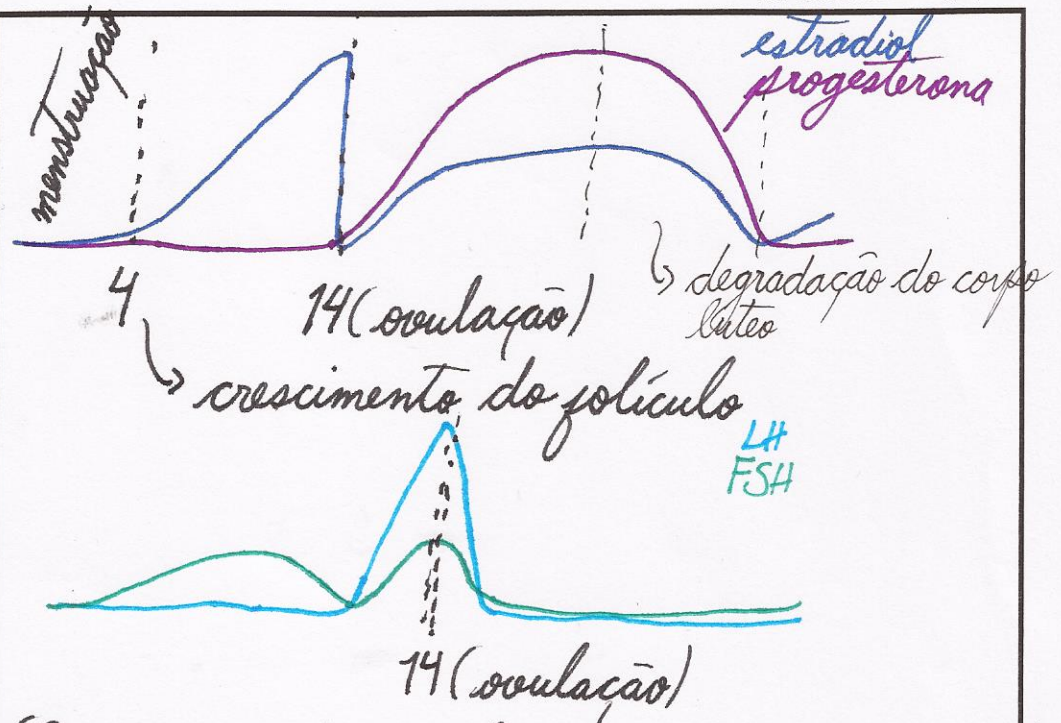 menstruação
estradiol
progesterona
4
14 (ovulação)
↳ degradação do corpo
lúteo
↳ crescimento do folículo
LH
FSH
14 (ovulação)